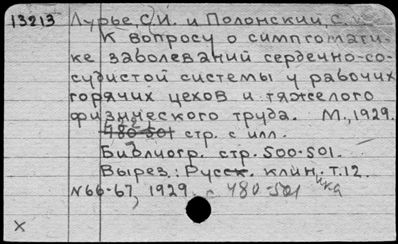 13213 Лурье, С.И. и Полонский, С.
К вопросу о симптомати-
ке заболеваний сердечно-со-
судистой системы у рабочих
горячих цехов и тяжелого
физического труда. М., 1929.
480-501 стр. с илл.
Библиогр. стр. 500-501.
Вырез.: Русск. клиника, т.12.
N66-67, 1929, с 480-501
X